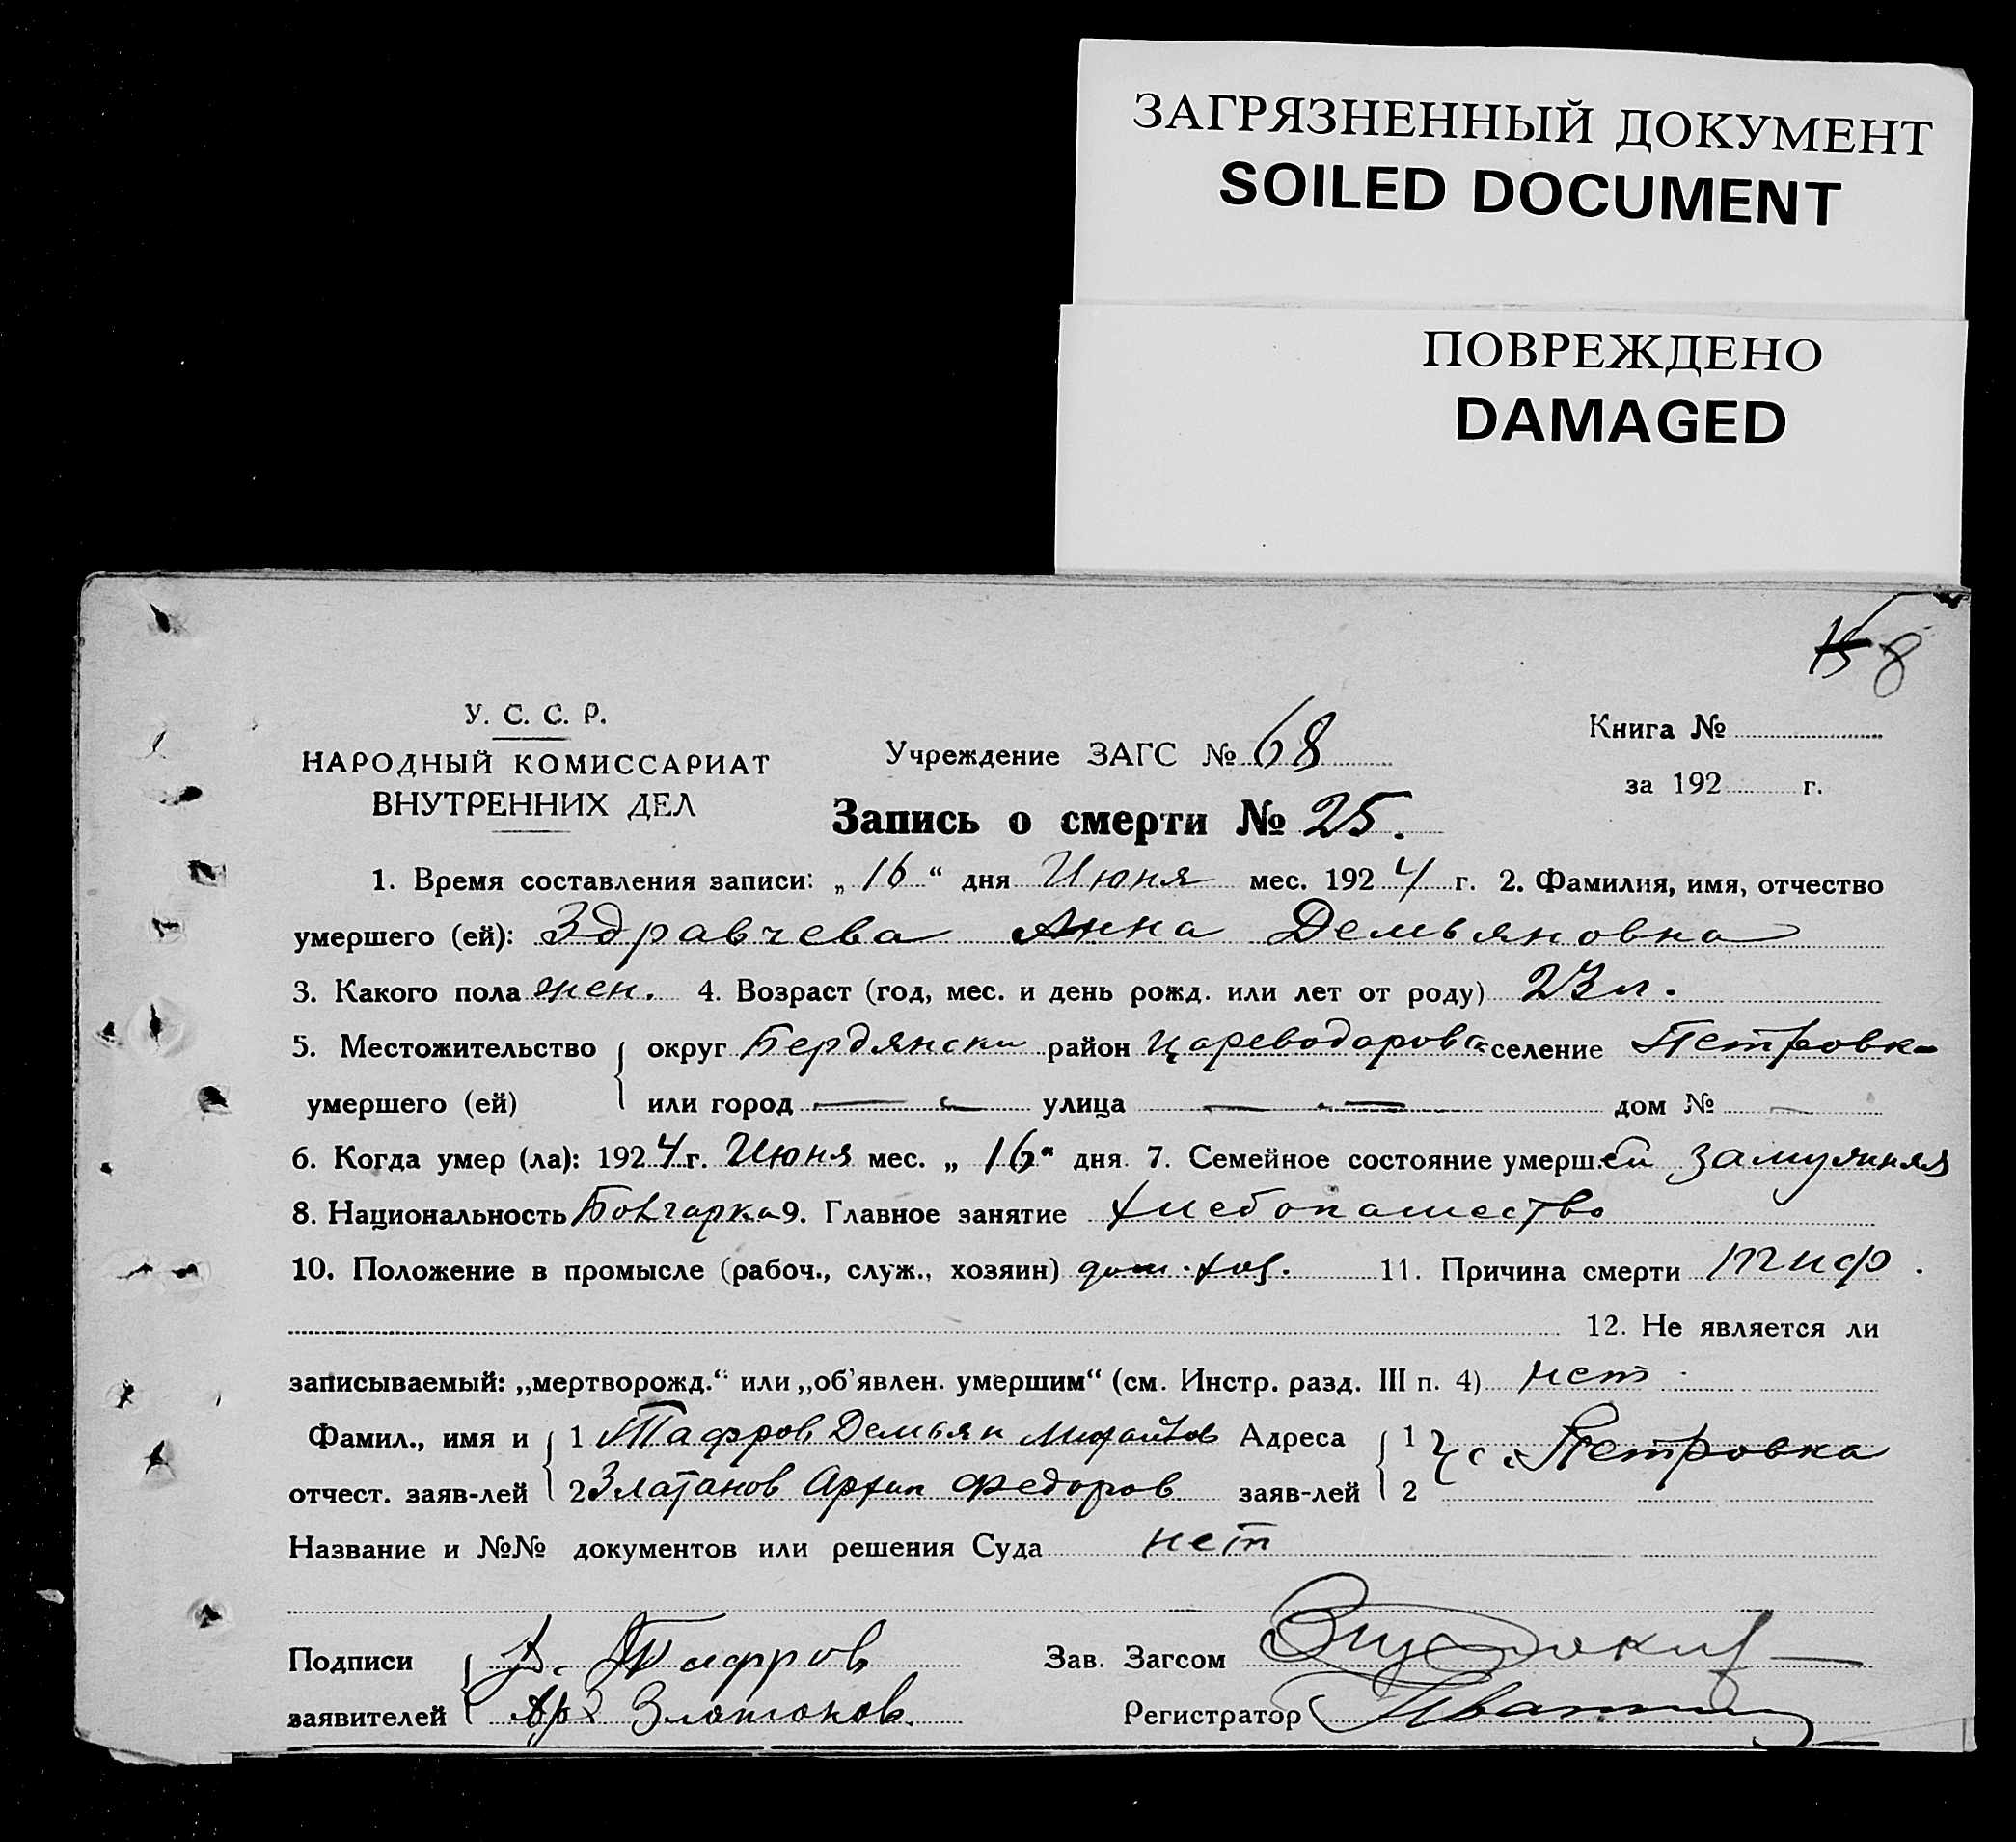 ЗАГРЯЗНЕННЫЙ ДОКУМЕНТ
SOILED DOCUMENT
ПОВРЕЖДЕНО
DAMAGED
15 8
У. С. С. Р.
НАРОДНЫЙ КОМИССАРИАТ
ВНУТРЕННИХ ДЕЛ
Учреждение ЗАГС № 68
Книга №
за 192 г.
Запись о смерти № 25.
1. Время составления записи: „ 16 “ дня Июня мес. 1924 г. 2. Фамилия, имя, отчество
умершего (ей): Здравчева Анна Демьяновна
3. Какого пола жен. 4. Возраст (год, мес. и день рожд. или лет от роду) 23 л.
5. Местожительство округ Бердянски район Цареводаровс селение Петровка
умершего (ей) или город — улица — дом № —
6. Когда умер (ла): 1924 г. Июня мес. „ 16 “ дня 7. Семейное состояние умерш.ей замужняя
8. Национальность Болгарка 9. Главное занятие Хлебопашество
10. Положение в промысле (рабоч., служ., хозяин) дом. хоз. 11. Причина смерти тиф.
12. Не является ли
записываемый: „мертворожд.“ или „об’явлен. умершим“ (см. Инстр. разд. III п. 4) нет
Фамил., имя и 1 Тафров Демьян Адреса 1 с. Петровка
отчест. заяв-лей 2 Златанов Архип Федоров заяв-лей 2
Название и №№ документов или решения Суда нет
Подписи Д. Тафров Зав. Загсом
заявителей Ар Златонов. Регистратор